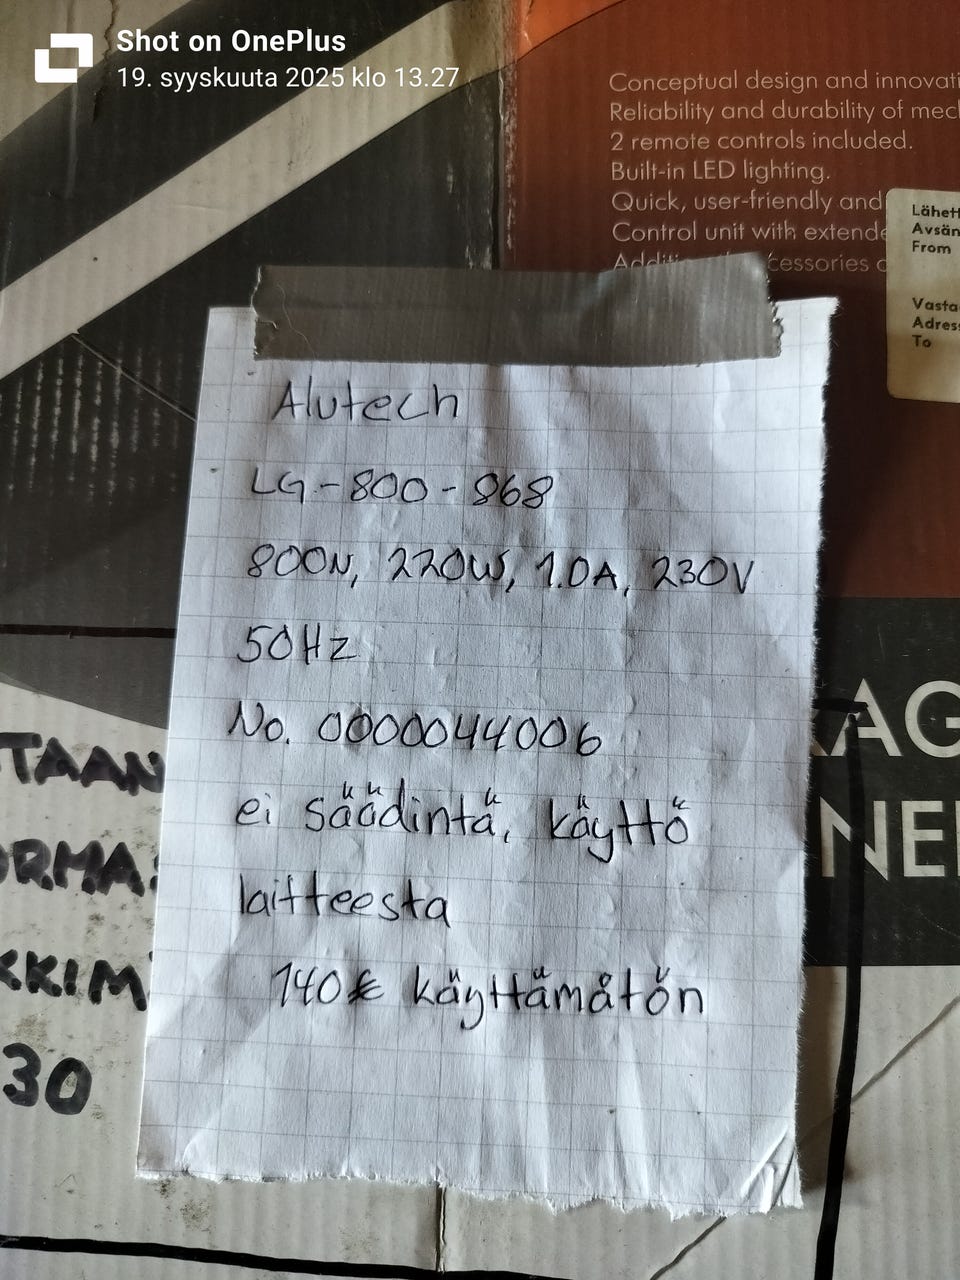 Shot on OnePlus
19. syyskuuta 2025 klo 13.27
Conceptual design and innovati
Reliability and durability of mec
2 remote controls included.
Built-in LED lighting.
Quick, user-friendly and
Control unit with extende
Additi cessories
Lähett
Avsän
From
Vasta
Adres
To
Alutech
LG-800-868
800N, 220W, 1.0A, 230V
50Hz
No. 0000044006
ei säädintä, käyttö
laitteesta
140€ käyttämåtön
TAAN
ORMA:
KKIM
30
AG
NE